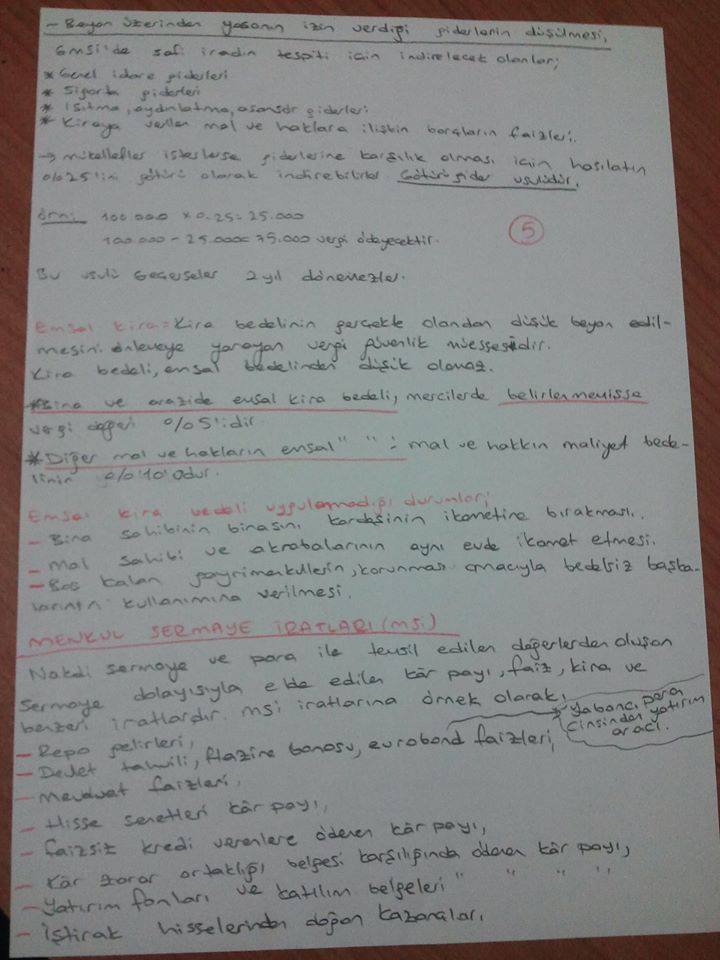 - Beyan üzerinden yasanın izin verdiği giderlerin düşülmesi,
GMSİ'de safi iradın tespiti için indirilecek olanlar;
* Genel idare giderleri
* Sigorta giderleri
* Isıtma, aydınlatma, asansör giderleri
* Kiraya verilen mal ve haklara ilişkin borçların faizleri.
→ mükellefler isterlerse giderlerine karşılık olması için hasılatın
%25'ini götürü olarak indirebilirler Götürü gider usulüdür.
Örn: 100.000 x 0.25 = 25.000
100.000 - 25.000 = 75.000 vergi ödeyecektir.
5
Bu usulü seçerseler 2 yıl dönemezler.
Emsal kira = Kira bedelinin gerçekte olandan düşük beyan edil-
mesini önlemeye yarayan vergi güvenlik müessesidir.
Kira bedeli, emsal bedelinden düşük olamaz.
* Bina ve arazide emsal kira bedeli, mercilerde belirlenmemişse
vergi değeri %5'idir
* Diğer mal ve hakların emsal " " : mal ve hakkın maliyet bede-
linin %10'udur.
Emsal kira bedeli uygulanmadığı durumlar;
- Bina sahibinin binasını kardeşinin ikametine bırakması.
- Mal sahibi ve akrabalarının aynı evde ikamet etmesi.
- Boş kalan gayrimenkullerin, korunması amacıyla bedelsiz başka-
larının kullanımına verilmesi.
MENKUL SERMAYE İRATLARI (MSİ)
Nakdi sermaye ve para ile temsil edilen değerlerden oluşan
sermaye dolayısıyla elde edilen kâr payı, faiz, kira ve
benzeri iratlardır. MSİ iratlarına örnek olarak;
- Repo gelirleri,
- Devlet tahvili, Hazine bonosu, eurobond faizleri,
Yabancı para
cinsinden yatırım
aracı.
- Mevduat faizleri,
- Hisse senetleri kâr payı,
- Faizsiz kredi verenlere ödenen kâr payı,
- Kâr zarar ortaklığı belgesi karşılığında ödenen kâr payı,
- Yatırım fonları ve katılım belgeleri " " " ,
- İştirak hisselerinden doğan kazançlar,